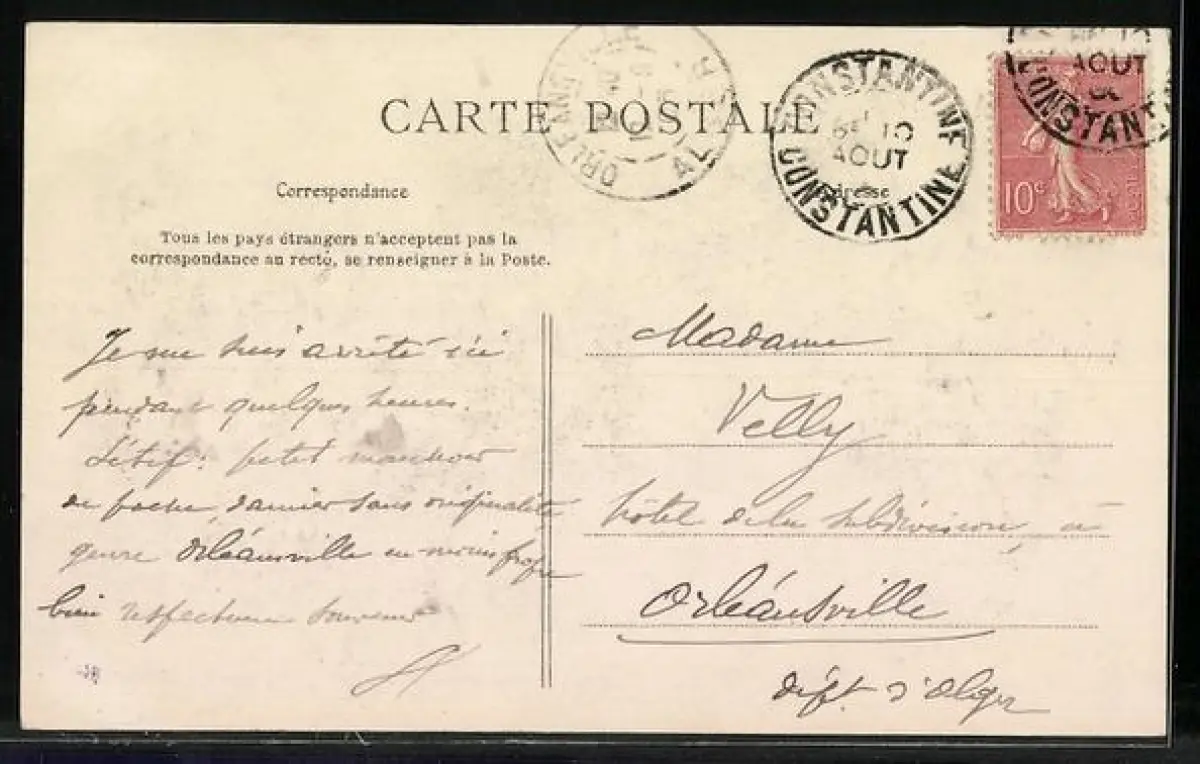 CARTE POSTALE
ORLÉANSVILLE
ALGER
CONSTANTINE
10
AOUT
CONSTANTINE
AOUT
CONSTANTINE
10c
Correspondance
Adresse
Tous les pays étrangers n'acceptent pas la
correspondance au recto, se renseigner à la Poste.
Je me suis arrêté ici
pendant quelques heures.
Sétif : petit mouchoir
de poche, damier sans originalité
genre Orléansville en moins propre
bien respectueux souvenir
Madame
Velly
hôtel de la subdivision, à
Orléansville
dépt. d'Alger